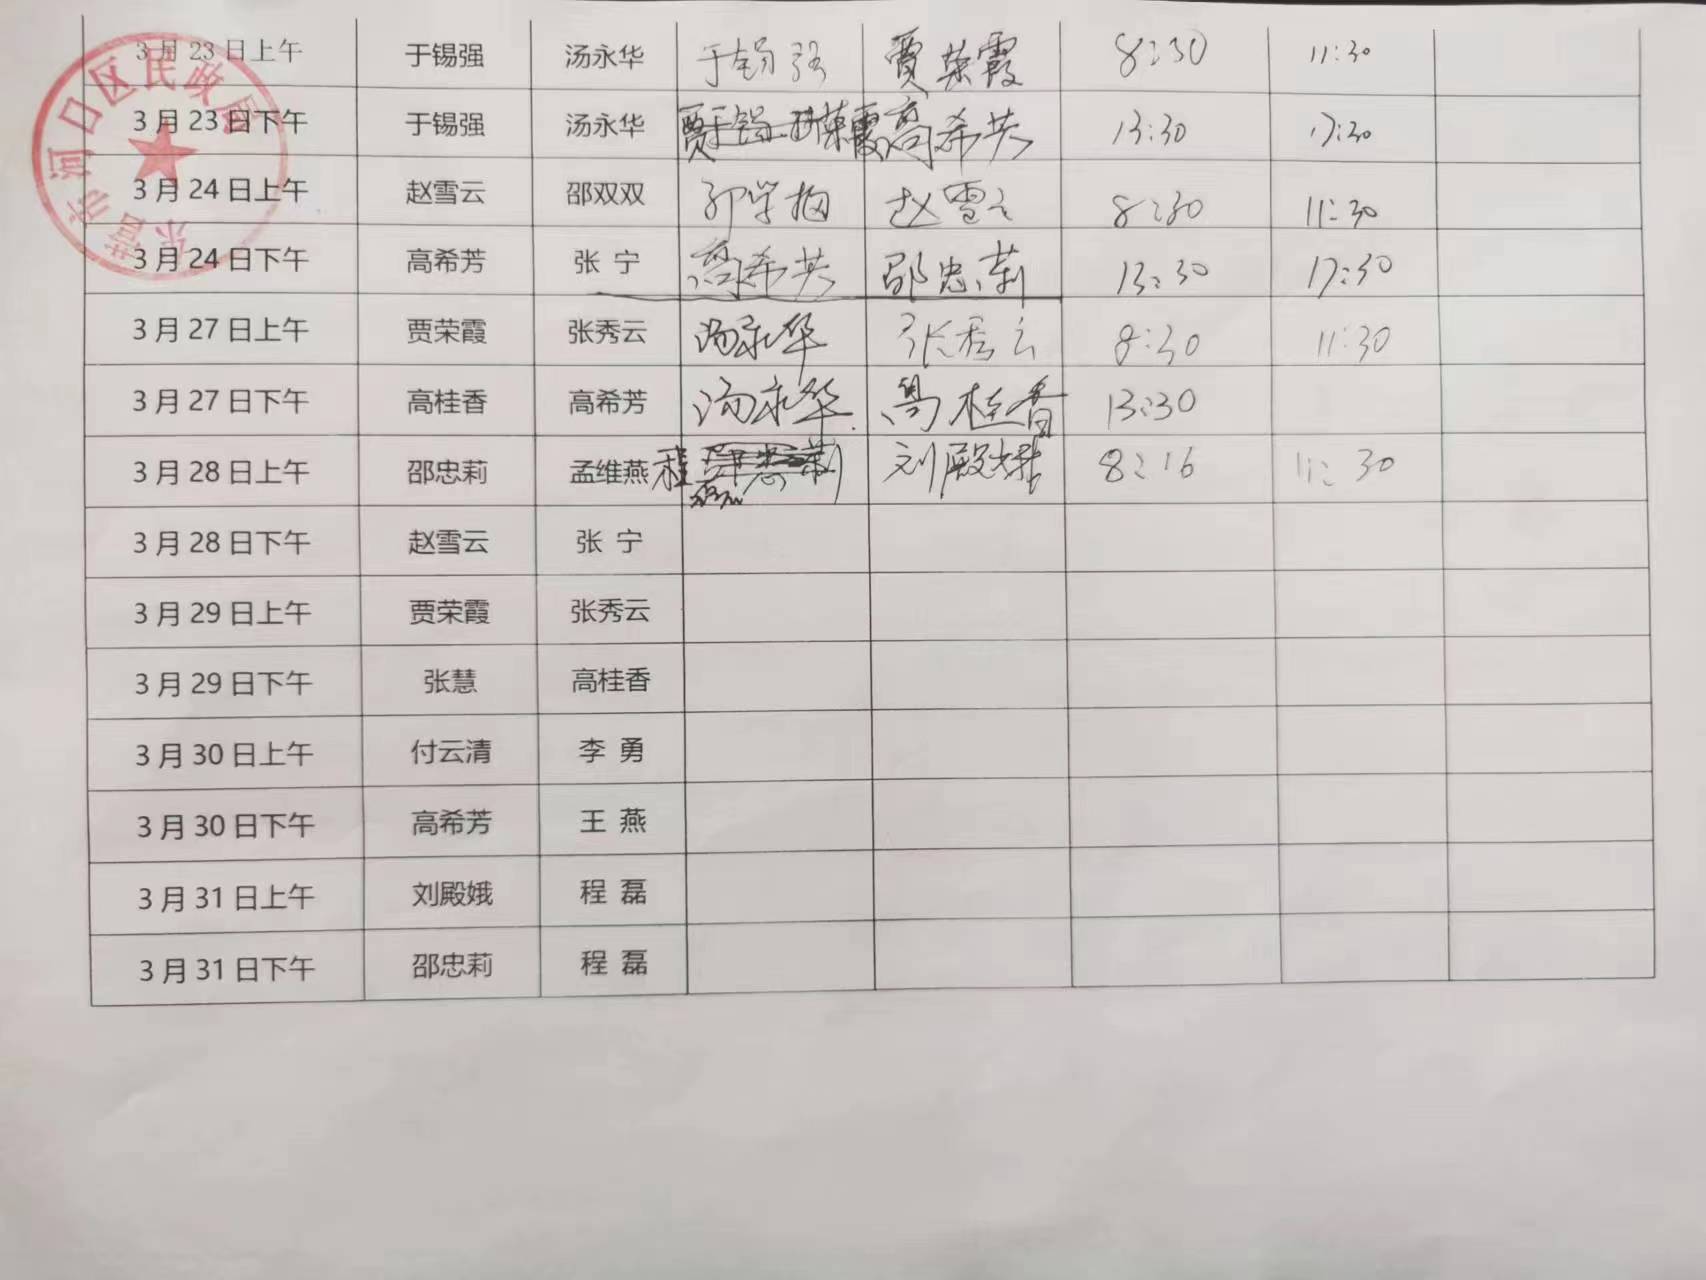 3月23日上午 于锡强 汤永华 于锡强 贾荣霞 8:30 11:30
3月23日下午 于锡强 汤永华 贾荣霞 高希芳 13:30 17:30
3月24日上午 赵雪云 邵双双 赵雪云 8:30 11:30
3月24日下午 高希芳 张 宁 高希芳 邵忠莉 13:30 17:30
3月27日上午 贾荣霞 张秀云 汤永华 张秀云 8:30 11:30
3月27日下午 高桂香 高希芳 汤永华 高桂香 13:30
3月28日上午 邵忠莉 孟维燕 程磊 刘殿娥 8:16 11:30
3月28日下午 赵雪云 张 宁
3月29日上午 贾荣霞 张秀云
3月29日下午 张慧 高桂香
3月30日上午 付云清 李 勇
3月30日下午 高希芳 王 燕
3月31日上午 刘殿娥 程 磊
3月31日下午 邵忠莉 程 磊
东营市河口区民政局